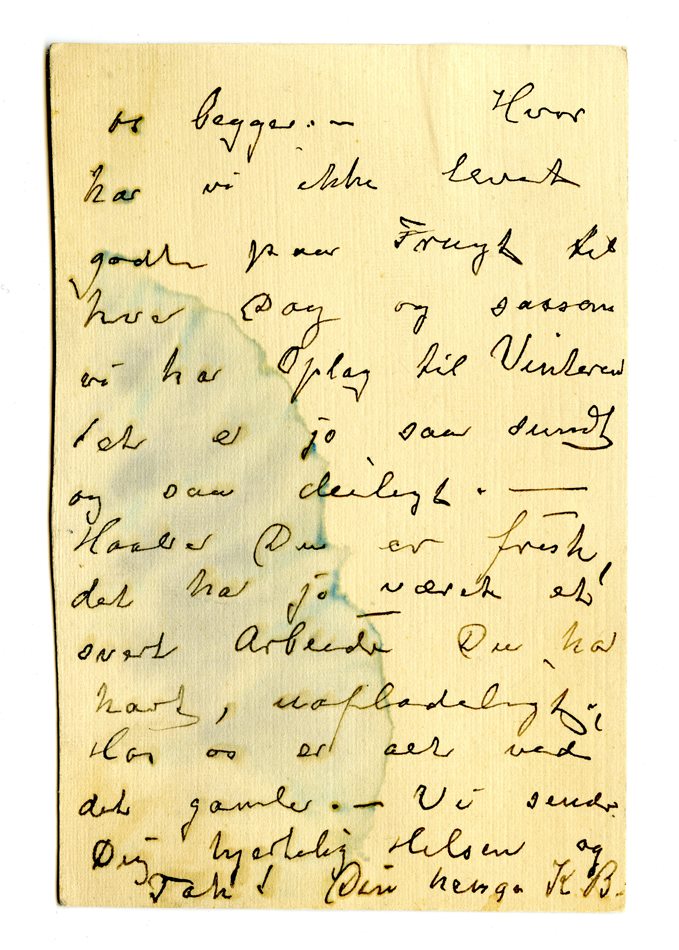 os begge. — Hvor
har vi ikke levet
godt paa Frugt til
hver Dag og saasom
vi har Oplag til Vinteren
det er jo saa sundt
og saa deiligt. —
Haaber Du er frisk,
det har jo været et
svert Arbeide Du har
havt, uopladeligt,
Hos os er alt ved
det gamle. — Vi sender
Dig hjertelig Hilsen og
Tak! Din K. B.